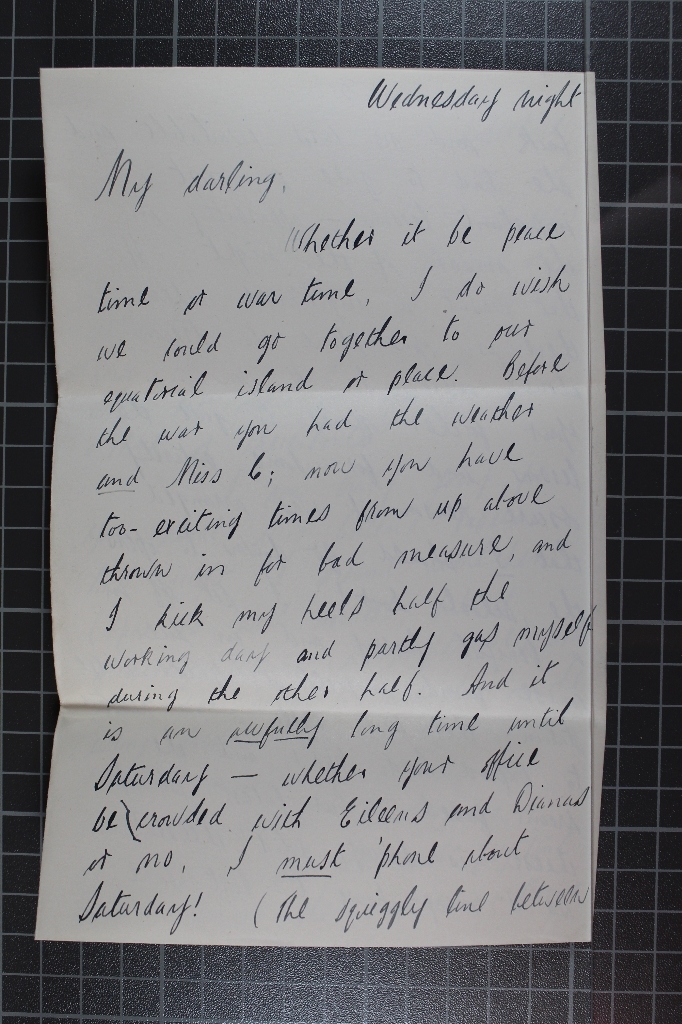 Wednesday night
My darling,
Whether it be peace
time or war time, I do wish
we could go together to our
equatorial island or place. Before
the war you had the weather
and Miss C; now you have
too-exciting times from up above
thrown in for bad measure, and
I kick my heels half the
working day and partly gas myself
during the other half. And it
is an awfully long time until
Saturday — whether your office
be crowded with Eileens and Dianas
or no, I must 'phone about
Saturday! (The squiggly line between